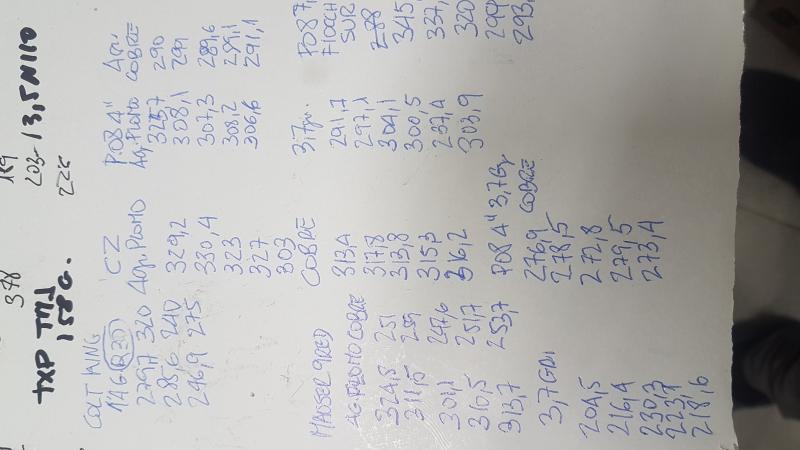 378
203-
13,5 N110
TXP TMJ
158 G.
COLT KING
279,7 320
285,6 240
296,9 275
CZ
Agu. PLOMO
329,2
330,4
323
327
303
P08 4"
Ag. PLOMO
308,1
307,3
308,2
306,6
Agu.
COBRE
290
299
289,6
289,1
291,1
MAUSER 9RED
AG. PLOMO COBRE
324,8 251
311,5 259
301,1 247,6
310,5 251,7
313,7 253,7
COBRE
313,4
317,8
313,8
315,3
316,2
317gr.
291,7
297,1
304,1
300,5
297,4
303,9
P08 7,
FIOCCH
SUR
345,
337,
320
299
293,
3,7 GRN
204,5
216,4
230,3
223,7
218,6
P08 4" 3,7 Gr
COBRE
276,9
278,5
272,8
279,5
273,4